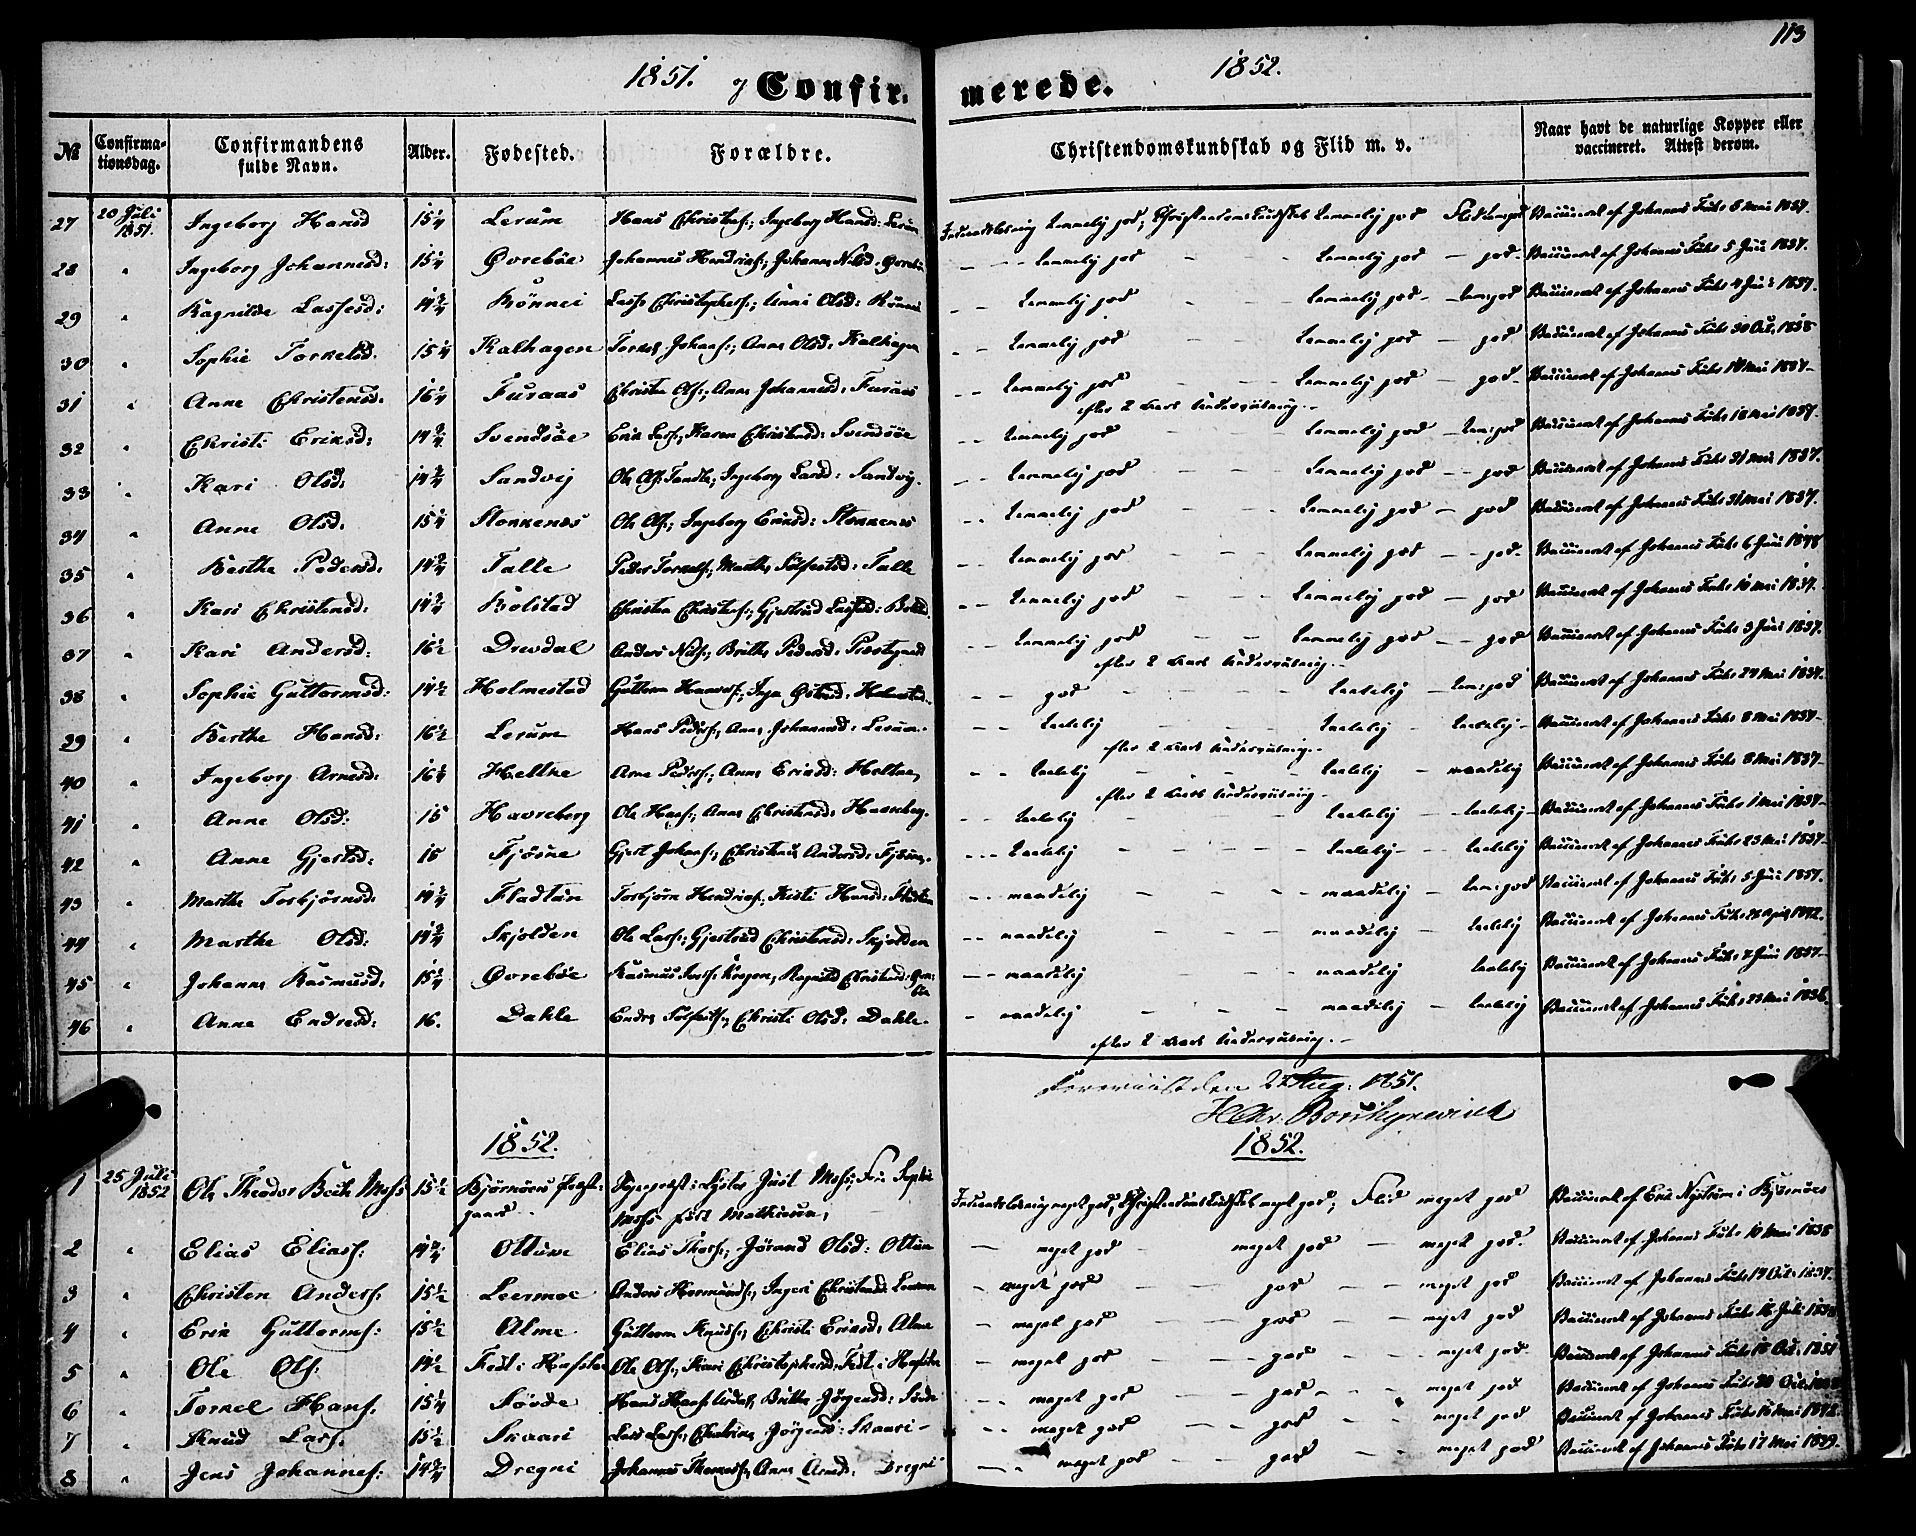 113
1851. og Confir- merede. 1852.
№ Confirma- Confirmandens Alder. Fødested. Forældre. Christendomskundskab og Flid m. v. Naar havt de naturlige Kopper eller
tionsdag. fulde Navn. vaccineret. Attest derom.
27 20 Juli 1851. Ingeborg Hansd 15 1/4 Lerum Hans Christens:, Ingeborg Hansd: Lerum Indenadslæsning temmelig god, Christendomskundskab temmelig god Flid tem: god Vaccineret af Johannes Fuhr 6 Mai 1837.
28 " Ingeborg Johannesd: 15 1/4 Øvrebøe Johannes Hendriks:, Johanne Nilsd: Øvrebøe - - - temmelig god - - temmelig god - god - Vaccineret af Johannes Fuhr 5 Juni 1837.
29 " Ragnilde Lassesd: 14 3/4 Rønnei Lasse Christophers:, Anna Olsd: Rønnei - - temmelig god - - temmelig god - tem: god Vaccineret af Johannes Fuhr 4 Juni 1837.
30 " Sophie Torkelsd. 15 1/4 Kalhagen Torkel Johans:, Anne Olsd: Kalhagen - - temmelig god - - temmelig god - god Vaccineret af Johannes Fuhr 30 Oct. 1838
31 " Anne Christensd: 16 1/4 Furaas Christen Ols:, Anne Johannesd: Furaas - - temmelig god - - temmelig god - god - Vaccineret af Johannes Fuhr 14 Mai 1837 -
efter 2 Aars Underviisning. -
32 " Christi Eriksd: 14 3/4 Svendsøe Erik Lars:, Karen Christensd: Svendsøe - - temmelig god - - temmelig god - tem: god Vaccineret af Johannes Fuhr 18 Mai 1837.
33 " Kari Olsd: 14 3/4 Sandvig Ole Ols: Tandle, Ingeborg Larsd: Sandvig. - - temmelig god - - - temmelig god - - god Vaccineret af Johannes Fuhr 31 Mai 1837.
34 " Anne Olsd. 15 1/4 Stokkenes Ole Ols:, Ingeborg Eriksd: Stokkenes - - temmelig god - - - temmelig god - god Vaccineret af Johannes Fuhr 31 Mai 1837.
35 " Berthe Pedersd: 14 3/4 Talle Peder Torkels:, Marthe Solfestsd: Talle - - temmelig god - - - temmelig god - - god - Vaccineret af Johannes Fuhr 6 Juni 1848
36 " Kari Christensd: 14 3/4 Bolstad Christen Christens:, Gjertrud Lassesd: Bolstad - - temmelig god - - - temmelig god - god Vaccineret af Johannes Fuhr 10 Mai 1837.
37 " Kari Andersd: 16 1/2 Drevdal Anders Nils:, Brithe Pedersd: Præstegaard - - temmelig god - - temmelig god - - god Vaccineret af Johannes Fuhr 3 Juni 1837.
efter 2 Aars Underviisning. -
38 " Sophie Guttormsd: 14 1/2 Holmestad Guttorm Hans:, Inga Østensd: Holmestad - - - god - - - taalelig - tem: god Vaccineret af Johannes Fuhr 24 Mai 1837.
39 " Berthe Hansd: 16 1/2 Lerum Hans Peders:, Anne Johannesd: Lerum - - - taalelig - - - taalelig - taalelig - Vaccineret af Johannes Fuhr 8 Mai 1837 -
efter 2 Aars Underviisning. -
40 " Ingeborg Arnesd: 16 1/4 Heltne Arne Peders:, Anne Eriksd: Heltne - - taalelig - - - - taalelig - maadelig Vaccineret af Johannes Fuhr 8 Mai 1837 -
efter 2 Aars Underviisning -
41 " Anne Olsd: 15 Havreberg Ole Hans:, Anne Christensd: Havreberg. - - taalelig - - - taalelig - taalelig - Vaccineret af Johannes Fuhr 1 Mai 1837 -
42 " Anne Gjestsd: 15 Fjøsne Gjest Johans:, Christense Andersd: Fjøsne. - - - taalelig - - - - taalelig - - taalelig Vaccineret af Johannes Fuhr 23 Mai 1837 -
43 " Marthe Torbjørnsd: 14 3/4 Fladtun Torbjørn Hendriks:, Kristi Hansd: Fladtun - - maadelig - - - maadelig - tem: god Vaccineret af Johannes Fuhr 5 Juni 1837.
44 " Marthe Olsd: 14 3/4 Skjolden Ole Lars:, Gjertrud Christensd: Skjolden - - maadelig - - - maadelig - taalelig Vaccineret af Johannes Fuhr 26 April 1842.
45 " Johanne Rasmusd: 15 1/4 Øvrebøe Rasmus Jens: Krogen, Ragnild Christensd: Øvre- bøe - - maadelig - - - maadelig taalelig Vaccineret af Johannes Fuhr 7 Juni 1837 -
46 " Anne Endresd: 16. Dahle Endre Solfests:, Christi Olsd: Dahle. - maadelig - - - maadelig - taalelig Vaccineret af Johannes Fuhr 23 Mai 1836.
efter 2 Aars Underviisning. -
Foreviist den 27 Aug: 1851.
1852. 1852.
1 25 Juli 1852 Ole Theodor Bech Moss 15 1/2 Kjørnæs Præste- gaard - Sogepræst: Lyster Just Moss, Frue Sophie Moss født Mathiesen, Indenadslæsning meget god, Christendomskundskab meget god, Flid meget god Vaccineret af Erik Nystrøm i Kjørnæs
2 " Elias Elias: 14 3/4 Ottum Elias Thors:, Jørand Olsd: Ottum - meget god - meget god - meget god. Vaccineret af Johannes Fuhr 10 Mai 1838
3 " Christen Anders: 15 1/2 Leermoe Anders Hermunds:, Ingeri Christensd: Leermoe - meget god - - god - meget god Vaccineret af Johannes Fuhr 19 Oct. 1837.
4 " Erik Guttorms: 15 1/2 Alme Guttorm Knuds:, Christi Eriksd: Alme - meget god - - god - - meget god Vaccineret af Johannes Fuhr 16 Juli 1838
5 " Ole Ols: 14 1/2 Fest i Hafslo Ole Ols:, Kari Christophersd, Fest i Hafsloe - meget god - - god - - meget god Vaccineret af Johannes Fuhr
6 " Torkel Hans: 15 1/4 Sørde Hans Hans:, Brithe Jørgensd: Sørde - - meget god - - god - - meget god Vaccineret af Johannes Fuhr 30 Oct.
7 " Knud Lars: 15 1/2 Skaari Lars Lars:, Cathrine Jørgensd: Skaari - - - meget god - - god - - meget god Vaccineret af Johannes Fuhr 16 Mai 1842.
8 " Jens Johannes: 14 3/4 Dregni Johannes Thomas:, Anna Arnesd: Dregni - - - meget god - god - - meget god Vaccineret af Johannes Fuhr 17 Mai 1839.